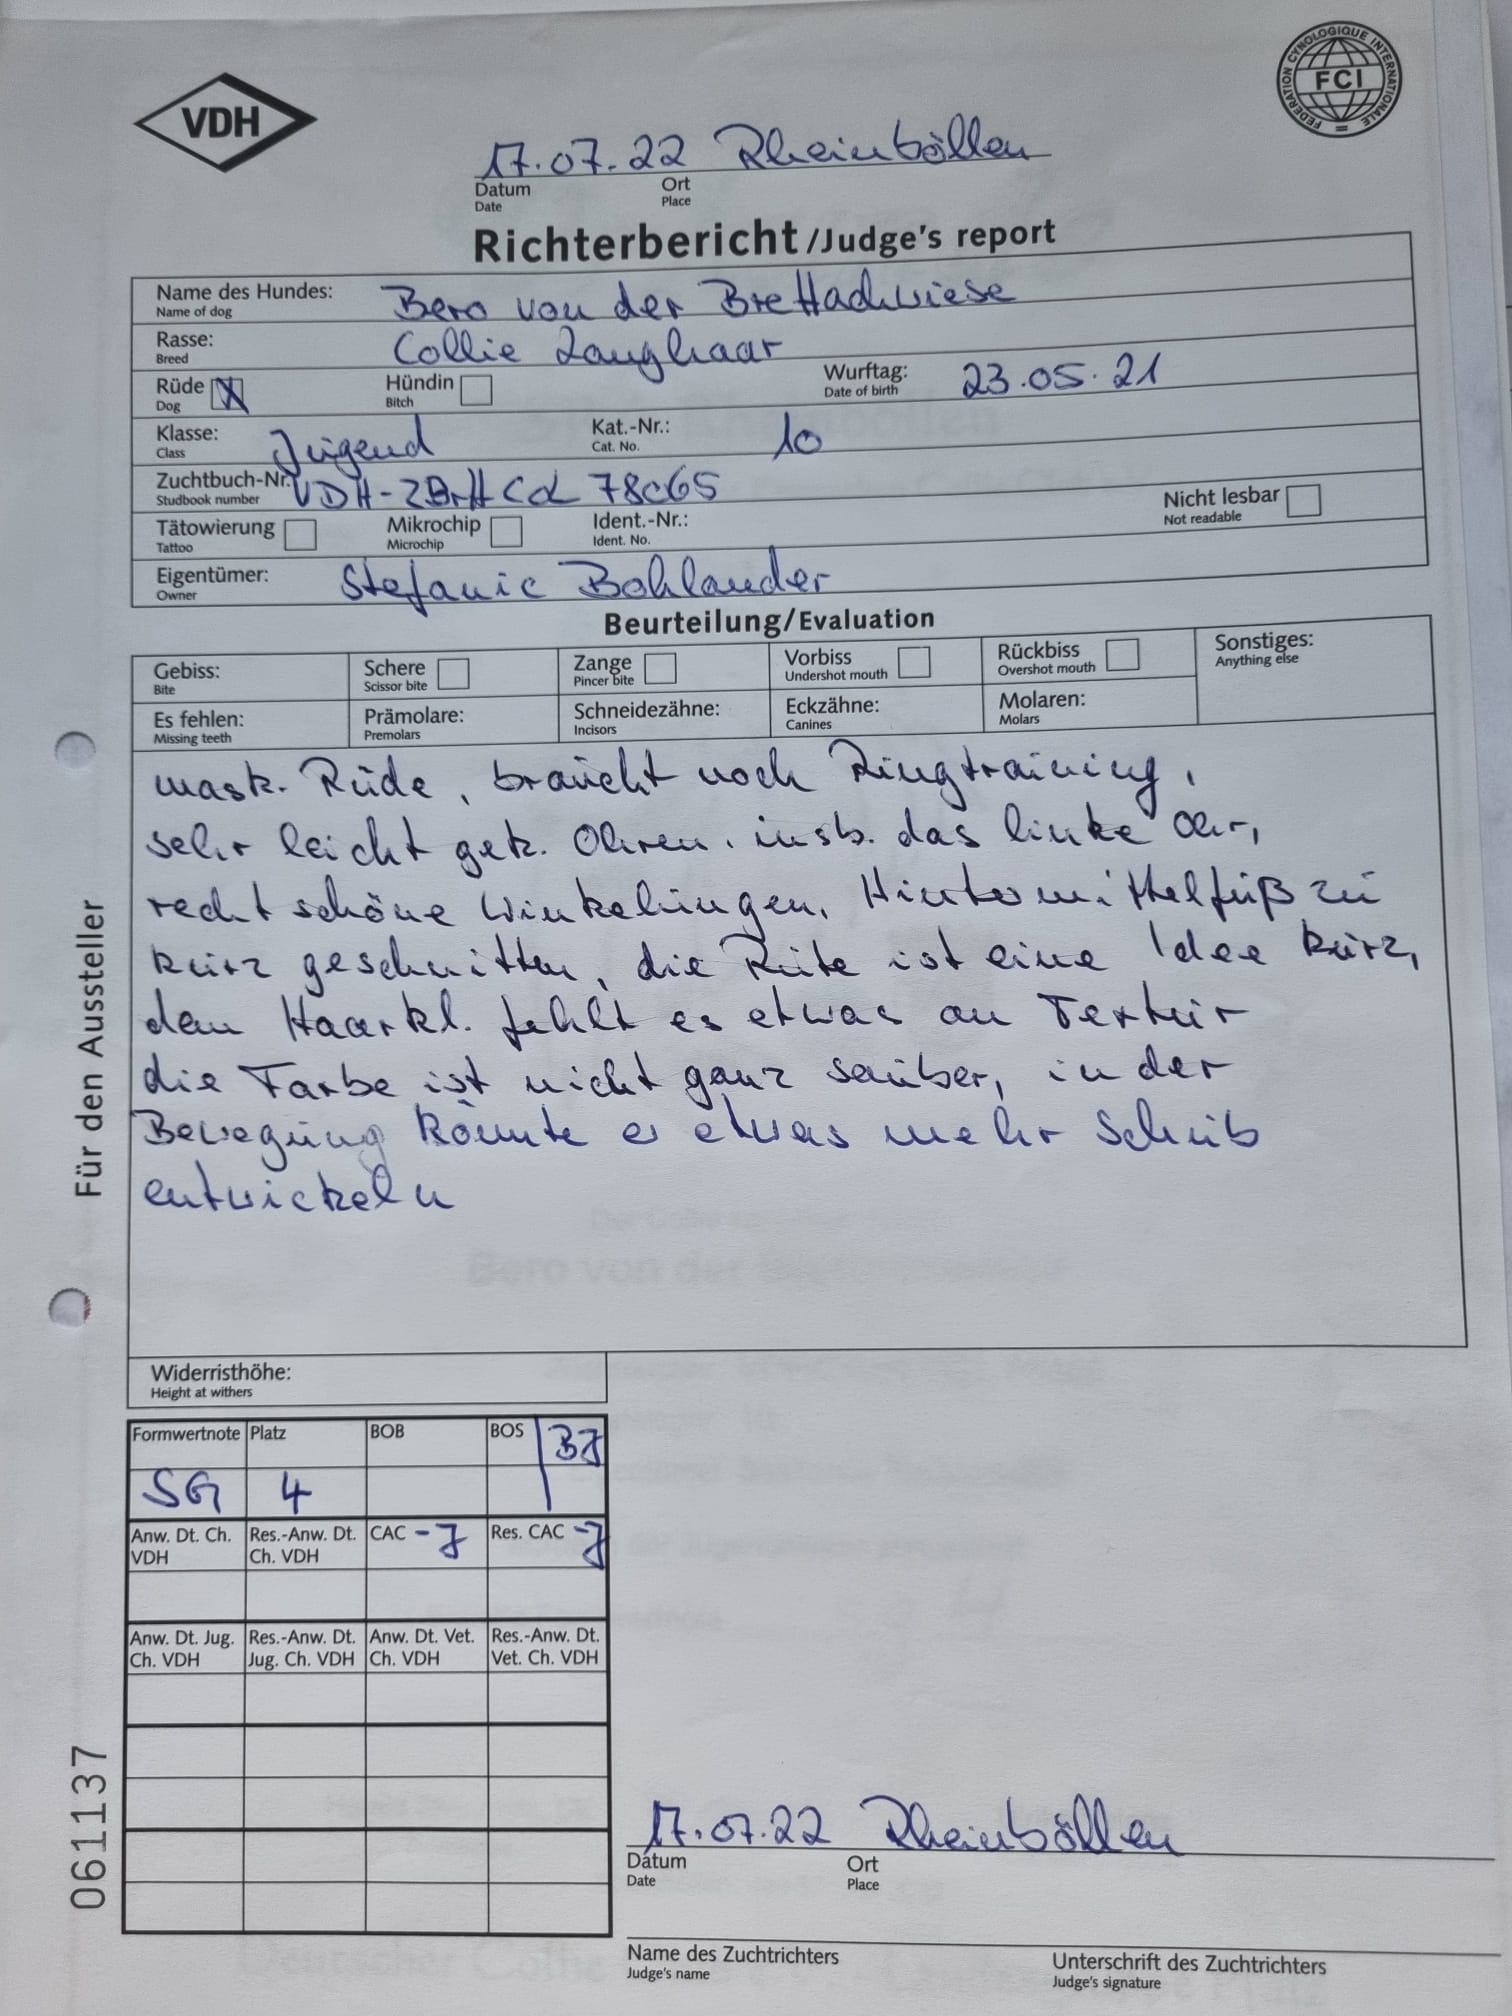 VDH
FEDERATION CYNOLOGIQUE INTERNATIONALE
FCI
17.07.22 Rheinböllen
Datum Ort
Date Place
Richterbericht/Judge's report
Name des Hundes: Bero von der Brettachwiese
Name of dog
Rasse: Collie Langhaar
Breed
Rüde X Hündin Wurftag: 23.05.21
Dog Bitch Date of birth
Klasse: Jugend Kat.-Nr.: 10
Class Cat. No.
Zuchtbuch-Nr. VDH-ZBrH COL 78065
Studbook number
Tätowierung Mikrochip Ident.-Nr.: Nicht lesbar
Tattoo Microchip Ident. No. Not readable
Eigentümer: Stefanie Bohlander
Owner
Beurteilung/Evaluation
Gebiss: Schere Zange Vorbiss Rückbiss Sonstiges:
Bite Scissor bite Pincer bite Undershot mouth Overshot mouth Anything else
Es fehlen: Prämolare: Schneidezähne: Eckzähne: Molaren:
Missing teeth Premolars Incisors Canines Molars
mask. Rüde, braucht noch Ringtraining,
sehr leicht get. Ohren, insb. das linke Ohr,
recht schöne Winkelungen, Hintermittelfuß zu
kurz geschnitten, die Rute ist eine Idee kurz,
dem Haarkl. fehlt es etwas an Textur
die Farbe ist nicht ganz sauber, in der
Bewegung könnte er etwas mehr Schub
entwickeln
Für den Aussteller
Widerristhöhe:
Height at withers
Formwertnote Platz BOB BOS BJ
SG 4
Anw. Dt. Ch. Res.-Anw. Dt. CAC -J Res. CAC -J
VDH Ch. VDH
Anw. Dt. Jug. Res.-Anw. Dt. Anw. Dt. Vet. Res.-Anw. Dt.
Ch. VDH Jug. Ch. VDH Ch. VDH Vet. Ch. VDH
061137
17.07.22 Rheinböllen
Datum Ort
Date Place
Name des Zuchtrichters Unterschrift des Zuchtrichters
Judge's name Judge's signature